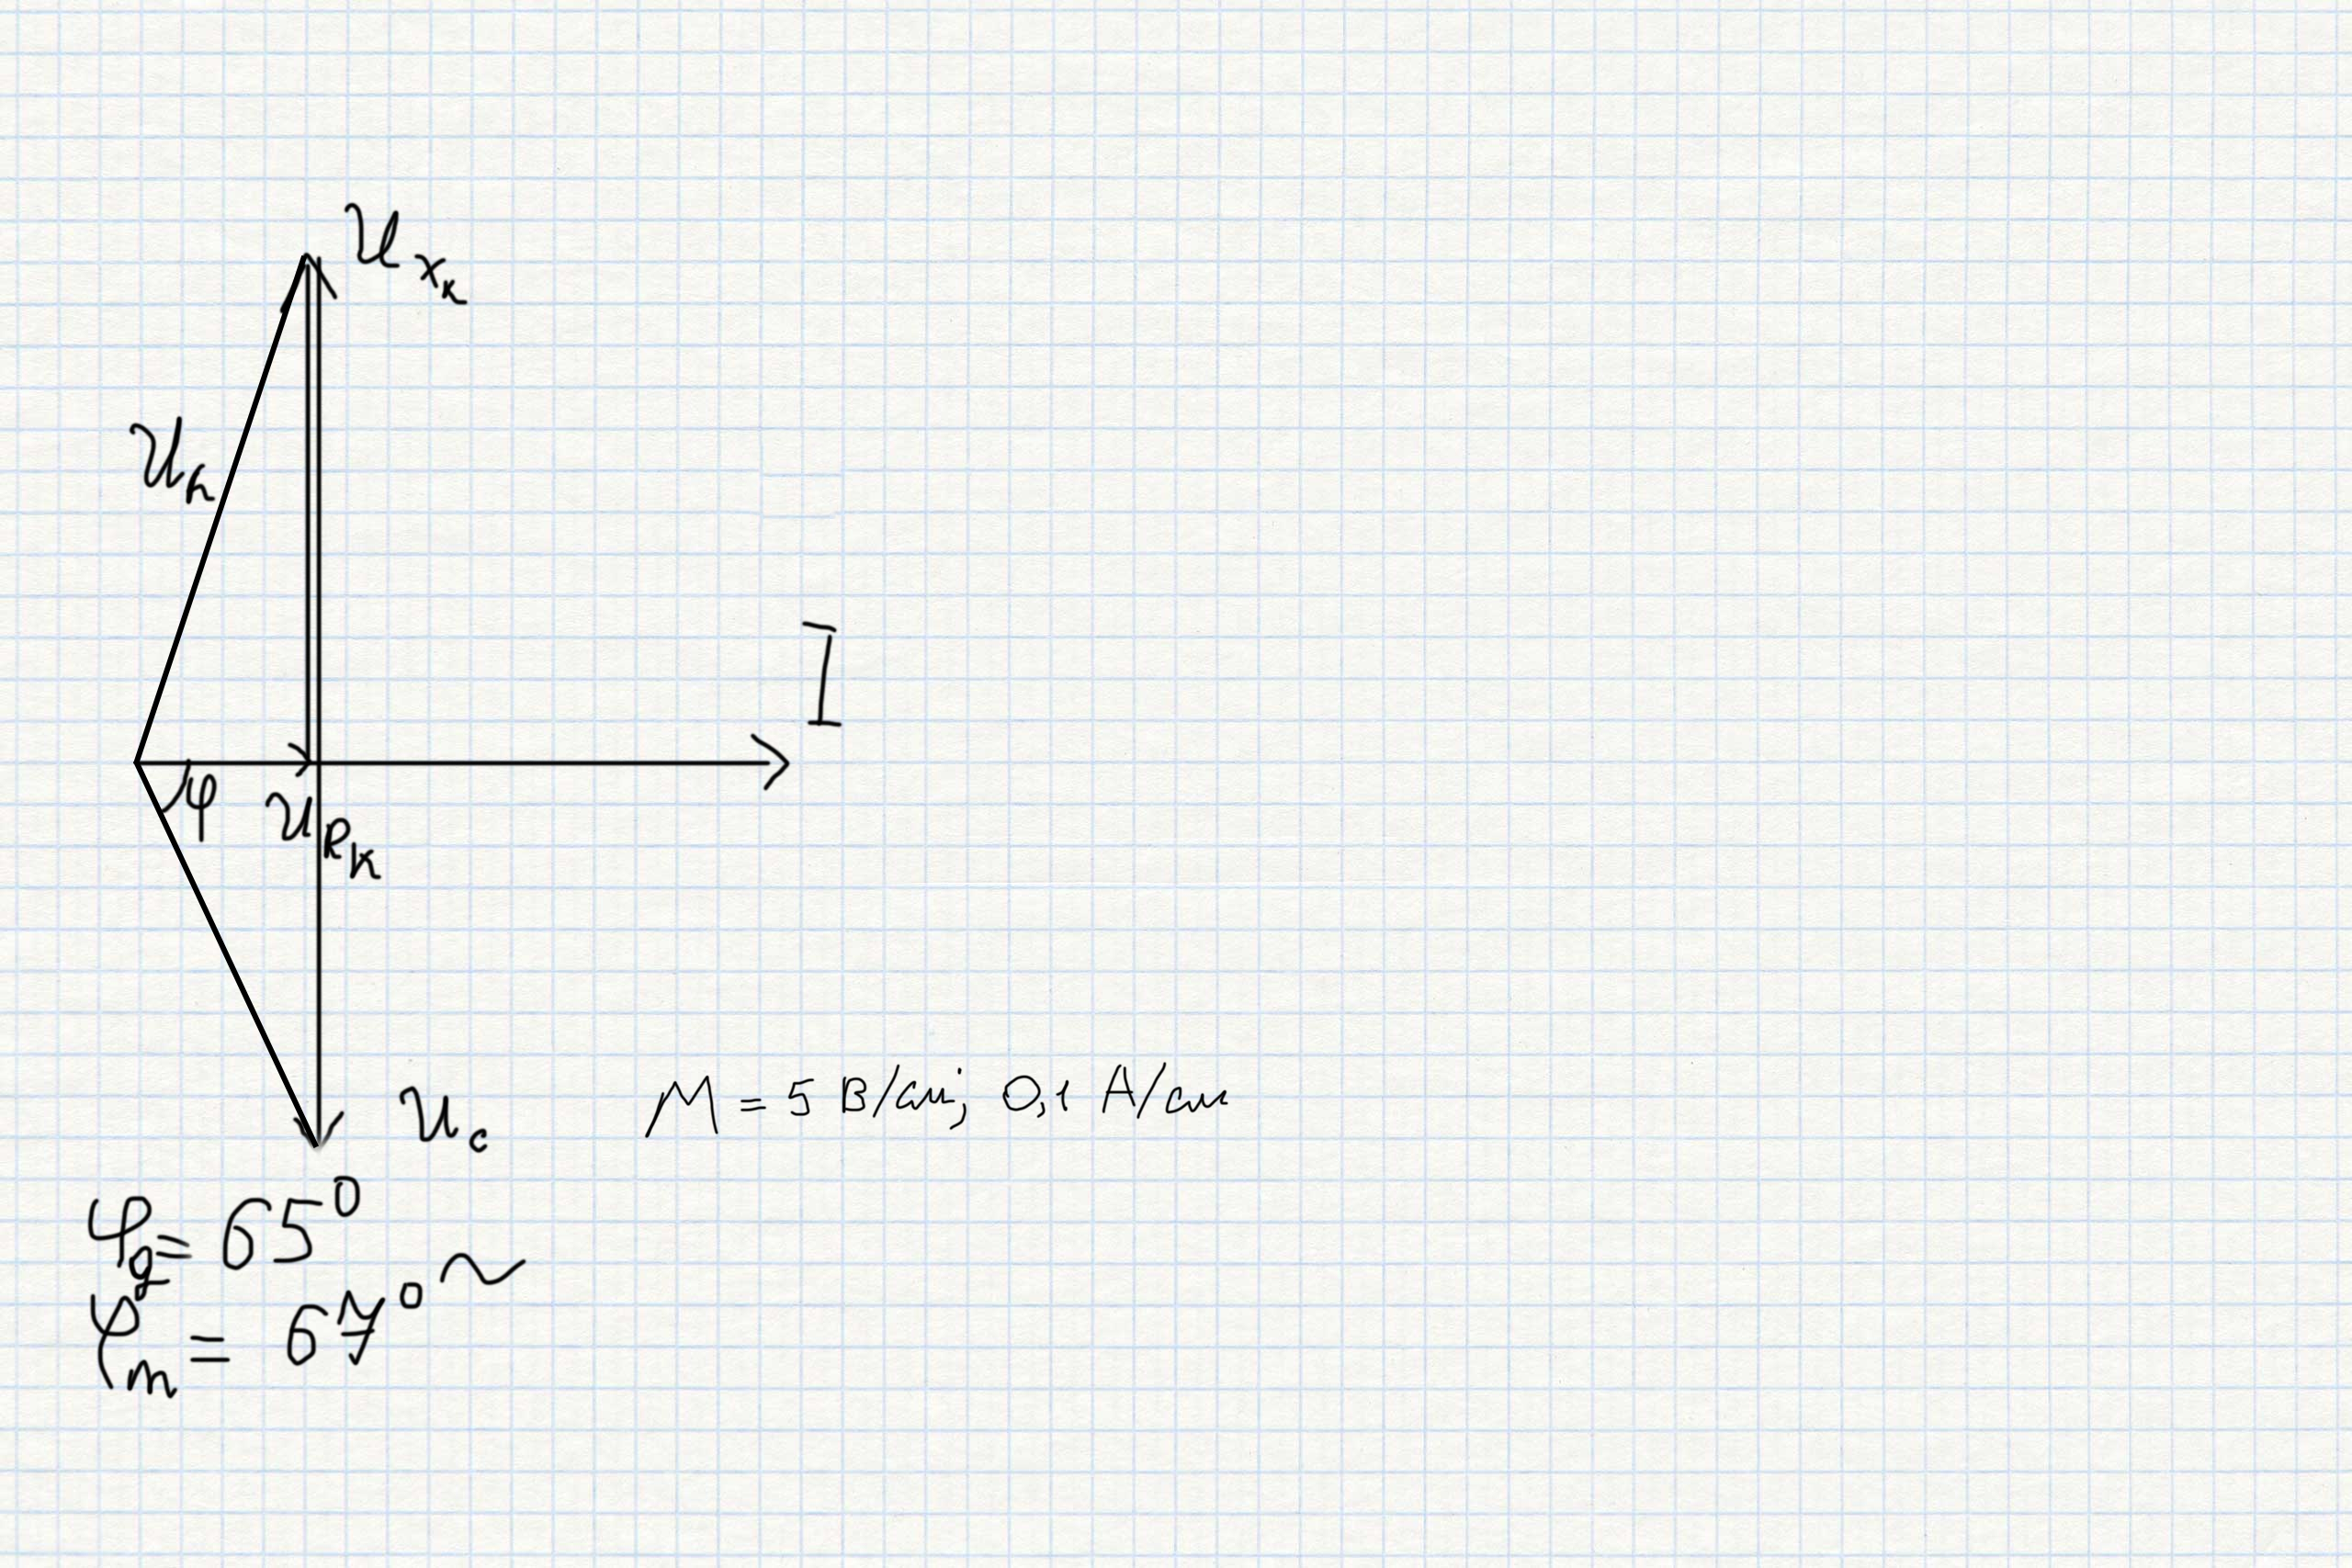 U_xк
U_к
I
φ
U_Rк
U_c
M = 5 В/см; 0,1 А/см
φ_g = 65°
φ_m = 67° ~